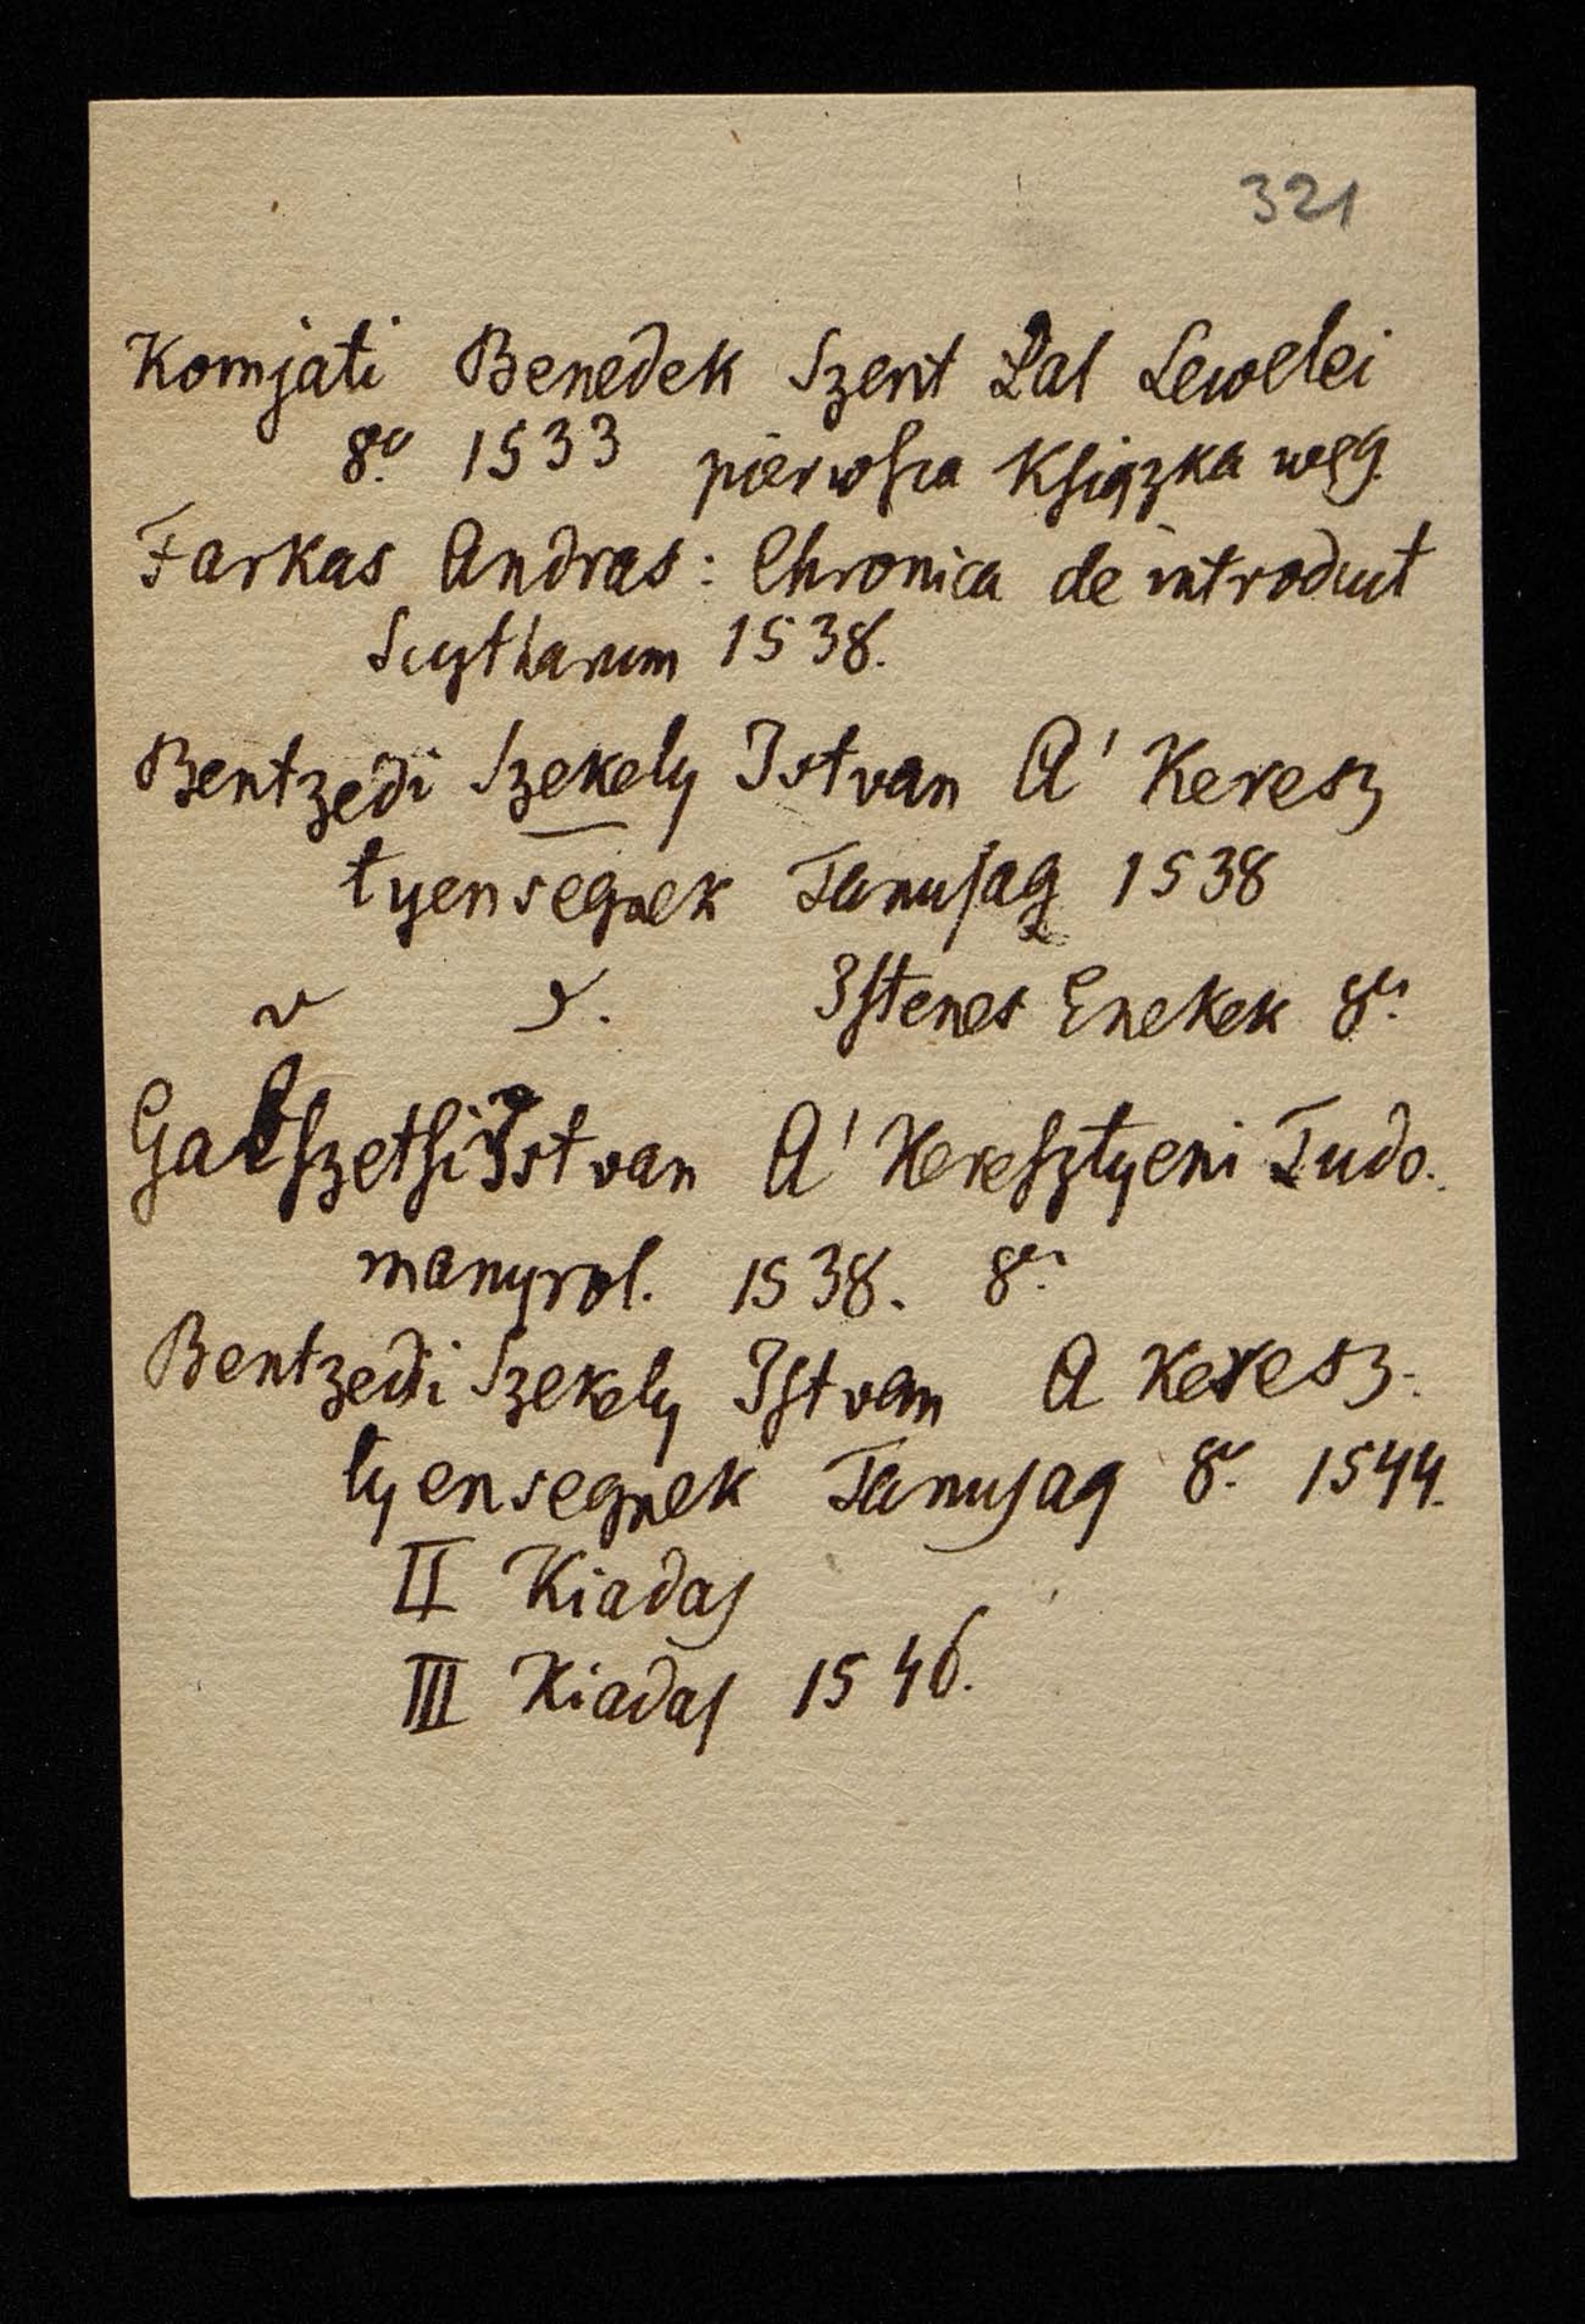 321
Komjati Benedek Szent Pal Lewelei
8º 1533 pierwsza Książka węg.
Farkas Andras: Chronica de introduct
Scytharum 1538.
Bentzedi Szekely Istvan A' Keresz
tyensegnek Tanusag 1538
Istenes Enekek 8º
Galszetsi Istvan A' Keresztyeni Tudo.
manyrol. 1538. 8º
Bentzedi Szekely Istvan A Keresz-
tyensegnek Tanusag 8º 1544.
II Kiadas
III Kiadas 1546.